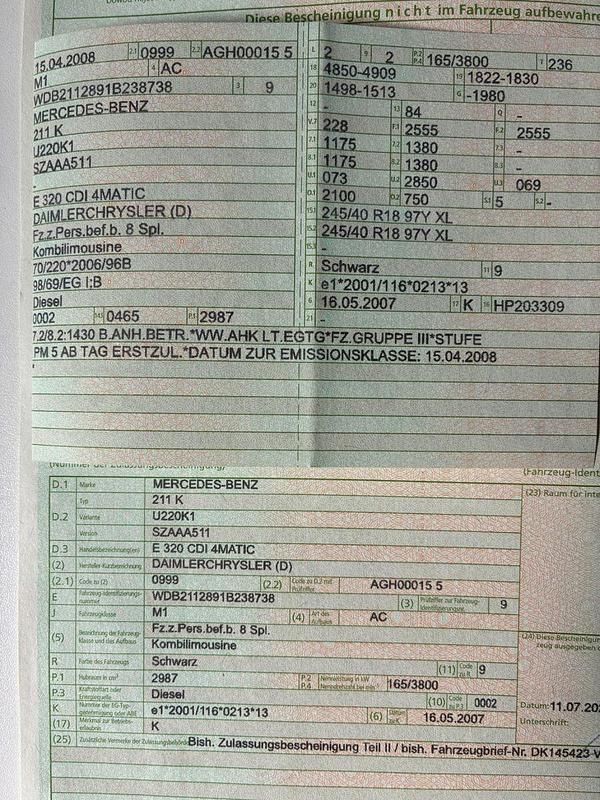 Diese Bescheinigung nicht im Fahrzeug aufbewahre
15.04.2008 2.1 0999 2.2 AGH00015 5 L 2 9 2 P.2 P.4 165/3800 T 236
M1 4 AC 18 4850-4909 19 1822-1830
WDB2112891B238738 3 9 20 1498-1513 G -1980
MERCEDES-BENZ 12 - 13 84 Q -
211 K V.7 228 F.1 2555 F.2 2555
U220K1 7.1 1175 7.2 1380 7.3 -
SZAAA511 8.1 1175 8.2 1380 8.3 -
- U.1 073 U.2 2850 U.3 069
E 320 CDI 4MATIC O.1 2100 O.2 750 S.1 5 S.2 -
DAIMLERCHRYSLER (D) 15.1 245/40 R18 97Y XL
Fz.z.Pers.bef.b. 8 Spl. 15.2 245/40 R18 97Y XL
Kombilimousine 15.3 -
70/220*2006/96B R Schwarz 11 9
98/69/EG I;B K e1*2001/116*0213*13
Diesel 6 16.05.2007 17 K 16 HP203309
0002 14.1 0465 P.1 2987 21 -
7.2/8.2:1430 B.ANH.BETR.*WW.AHK LT.EGTG*FZ.GRUPPE III*STUFE
PM 5 AB TAG ERSTZUL.*DATUM ZUR EMISSIONSKLASSE: 15.04.2008
(Nummer der Zulassungsbescheinigung) (Fahrzeug-Ident
D.1 Marke MERCEDES-BENZ (23) Raum für inte
Typ 211 K
D.2 Variante U220K1
Version SZAAA511
D.3 Handelsbezeichnung(en) E 320 CDI 4MATIC
(2) Hersteller-Kurzbezeichnung DAIMLERCHRYSLER (D)
(2.1) Code zu (2) 0999 (2.2) Code zu D.2 mit Prüfziffer AGH00015 5
E Fahrzeug-Identifizierungs-nummer WDB2112891B238738 (3) Prüfziffer zur Fahrzeug-Identifizierungsnr. 9
J Fahrzeugklasse M1 (4) Art des Aufbaus AC
(5) Bezeichnung der Fahrzeug-klasse und des Aufbaus Fz.z.Pers.bef.b. 8 Spl. (24) Diese Bescheinigun
Kombilimousine zeug ausgegeben
R Farbe des Fahrzeugs Schwarz (11) Code zu R 9
P.1 Hubraum in cm³ 2987 P.2 P.4 Nennleistung in kW Nenndrehzahl bei min⁻¹ 165/3800
P.3 Kraftstoffart oder Energiequelle Diesel (10) Code zu P.3 0002 Datum: 11.07.20
K Nummer der EG-Typ-genehmigung oder ABE e1*2001/116*0213*13 (6) Datum zu K 16.05.2007 Unterschrift:
(17) Merkmal zur Betriebs-erlaubnis K
(25) Zusätzliche Vermerke der Zulassungsbehörde Bish. Zulassungsbescheinigung Teil II / bish. Fahrzeugbrief-Nr. DK145423